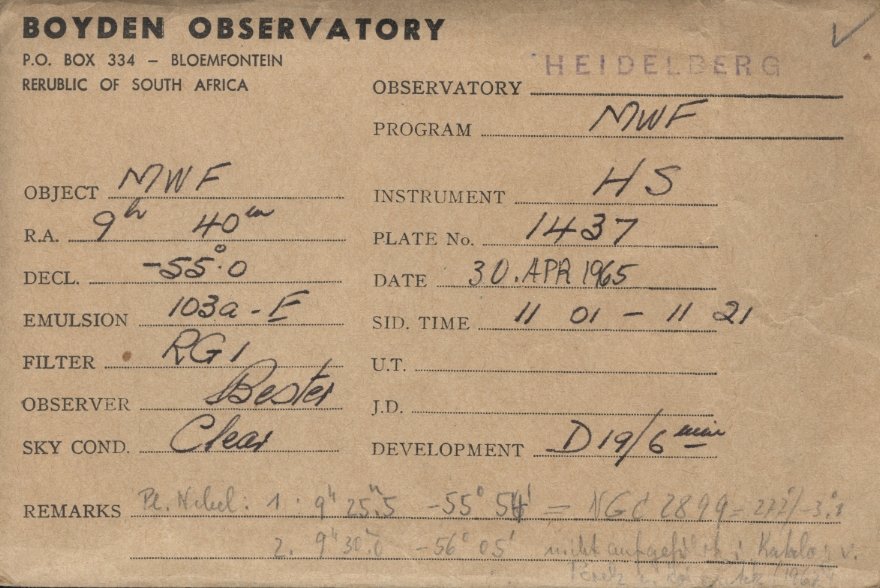 BOYDEN OBSERVATORY
P.O. BOX 334 – BLOEMFONTEIN
RERUBLIC OF SOUTH AFRICA
OBSERVATORY HEIDELBERG
PROGRAM MWF
OBJECT MWF
R.A. 9h 40m
DECL. -55°.0
EMULSION 103a-E
FILTER RG1
OBSERVER Bester
SKY COND. Clear
INSTRUMENT HS
PLATE No. 1437
DATE 30. APR 1965
SID. TIME 11 01 – 11 21
U.T.
J.D.
DEVELOPMENT D19/6 min
REMARKS Pl. Nebel: 1. 9h 25m.5 -55° 54' = NGC 2899 = 277°/-3°.1
2. 9h 30m.0 -56° 05' nicht aufgeführt i. Katalog v.